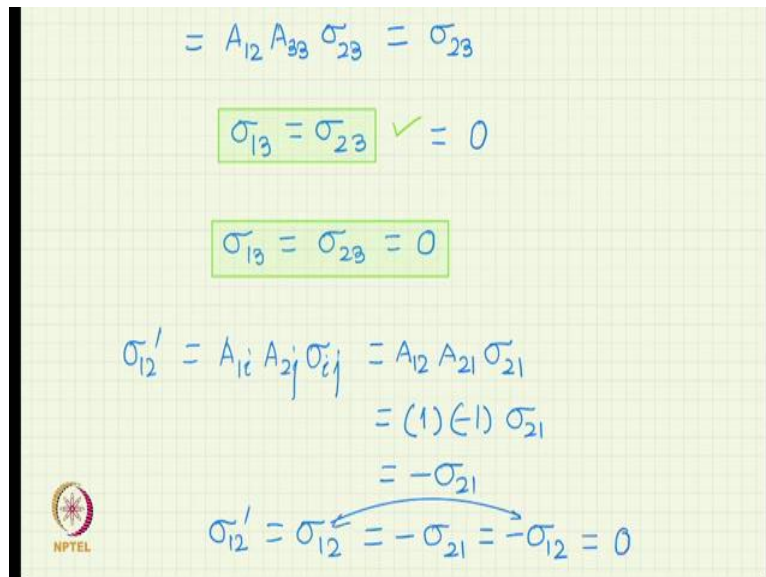 = A₁₂ A₃₃ σ₂₃ = σ₂₃
σ₁₃ = σ₂₃ ✓ = 0
σ₁₃ = σ₂₃ = 0
σ₁₂' = A₁ᵢ A₂ⱼ σᵢⱼ = A₁₂ A₂₁ σ₂₁
= (1) (-1) σ₂₁
= -σ₂₁
σ₁₂' = σ₁₂ = -σ₂₁ = -σ₁₂ = 0
NPTEL